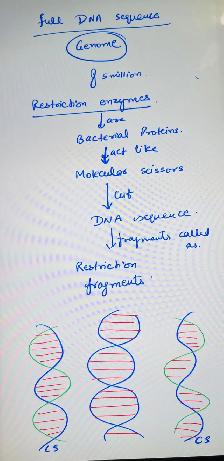 full DNA sequence
Genome
5 million.
Restriction enzymes.
are
Bacterial Proteins.
act like
Molecular scissors
Cut
DNA sequence.
fragments called
as.
Restriction
fragments.
CS
CS